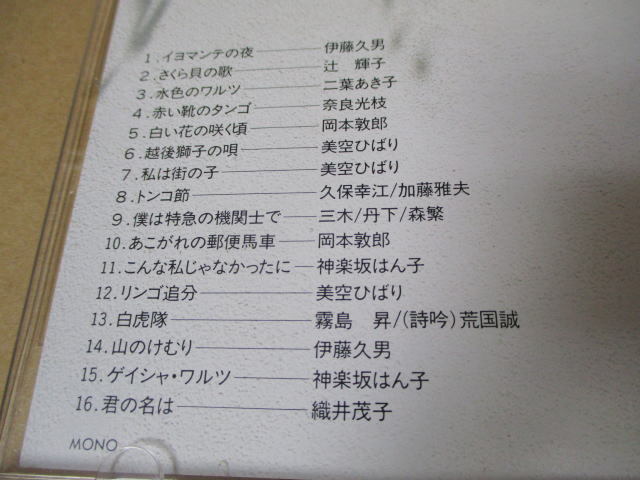 1.イヨマンテの夜――伊藤久男
2.さくら貝の歌――辻　輝子
3.水色のワルツ――二葉あき子
4.赤い靴のタンゴ――奈良光枝
5.白い花の咲く頃――岡本敦郎
6.越後獅子の唄――美空ひばり
7.私は街の子――美空ひばり
8.トンコ節――久保幸江/加藤雅夫
9.僕は特急の機関士で――三木/丹下/森繁
10.あこがれの郵便馬車――岡本敦郎
11.こんな私じゃなかったに――神楽坂はん子
12.リンゴ追分――美空ひばり
13.白虎隊――霧島　昇/(詩吟)荒国誠
14.山のけむり――伊藤久男
15.ゲイシャ・ワルツ――神楽坂はん子
16.君の名は――織井茂子
MONO